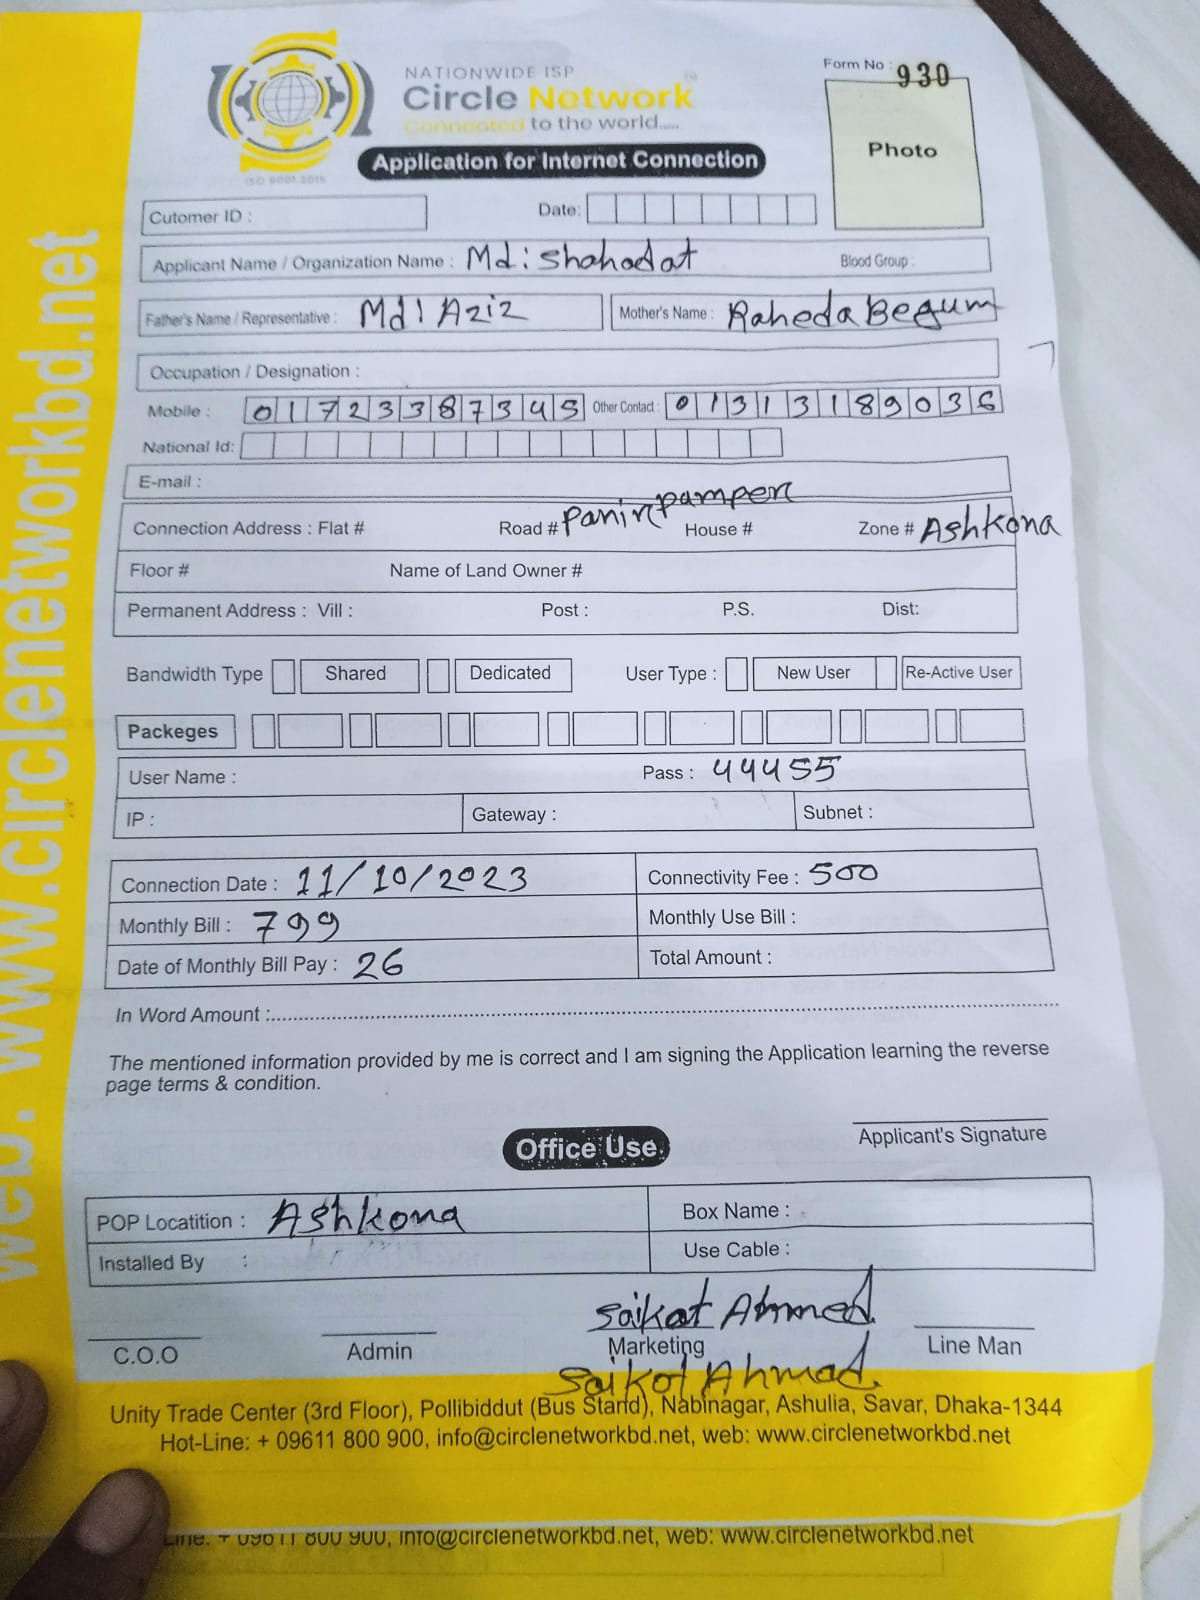 web: www.circlenetworkbd.net
NATIONWIDE ISP
Circle Network
Connected to the world.....
ISO 9001:2015
Form No : 930
Photo
Application for Internet Connection
Cutomer ID :
Date:
Applicant Name / Organization Name : Md: Shahadat Blood Group :
Father's Name / Representative : Md: Aziz Mother's Name : Raheda Begum
Occupation / Designation :
Mobile : 01723387345 Other Contact : 01313189036
National Id:
E-mail :
Connection Address : Flat # Road # Panir pamper House # Zone # Ashkona
Floor # Name of Land Owner #
Permanent Address : Vill : Post : P.S. Dist:
Bandwidth Type Shared Dedicated User Type : New User Re-Active User
Packeges
User Name : Pass : 44455
IP : Gateway : Subnet :
Connection Date : 11/10/2023 Connectivity Fee : 500
Monthly Bill : 799 Monthly Use Bill :
Date of Monthly Bill Pay : 26 Total Amount :
In Word Amount :
The mentioned information provided by me is correct and I am signing the Application learning the reverse
page terms & condition.
Applicant's Signature
Office Use
POP Locatition : Ashkona Box Name :
Installed By : Use Cable :
Saikat Ahmed
C.O.O Admin Marketing Line Man
Saikot Ahmad.
Unity Trade Center (3rd Floor), Pollibiddut (Bus Stand), Nabinagar, Ashulia, Savar, Dhaka-1344
Hot-Line: + 09611 800 900, info@circlenetworkbd.net, web: www.circlenetworkbd.net
Line: + 09611 800 900, info@circlenetworkbd.net, web: www.circlenetworkbd.net